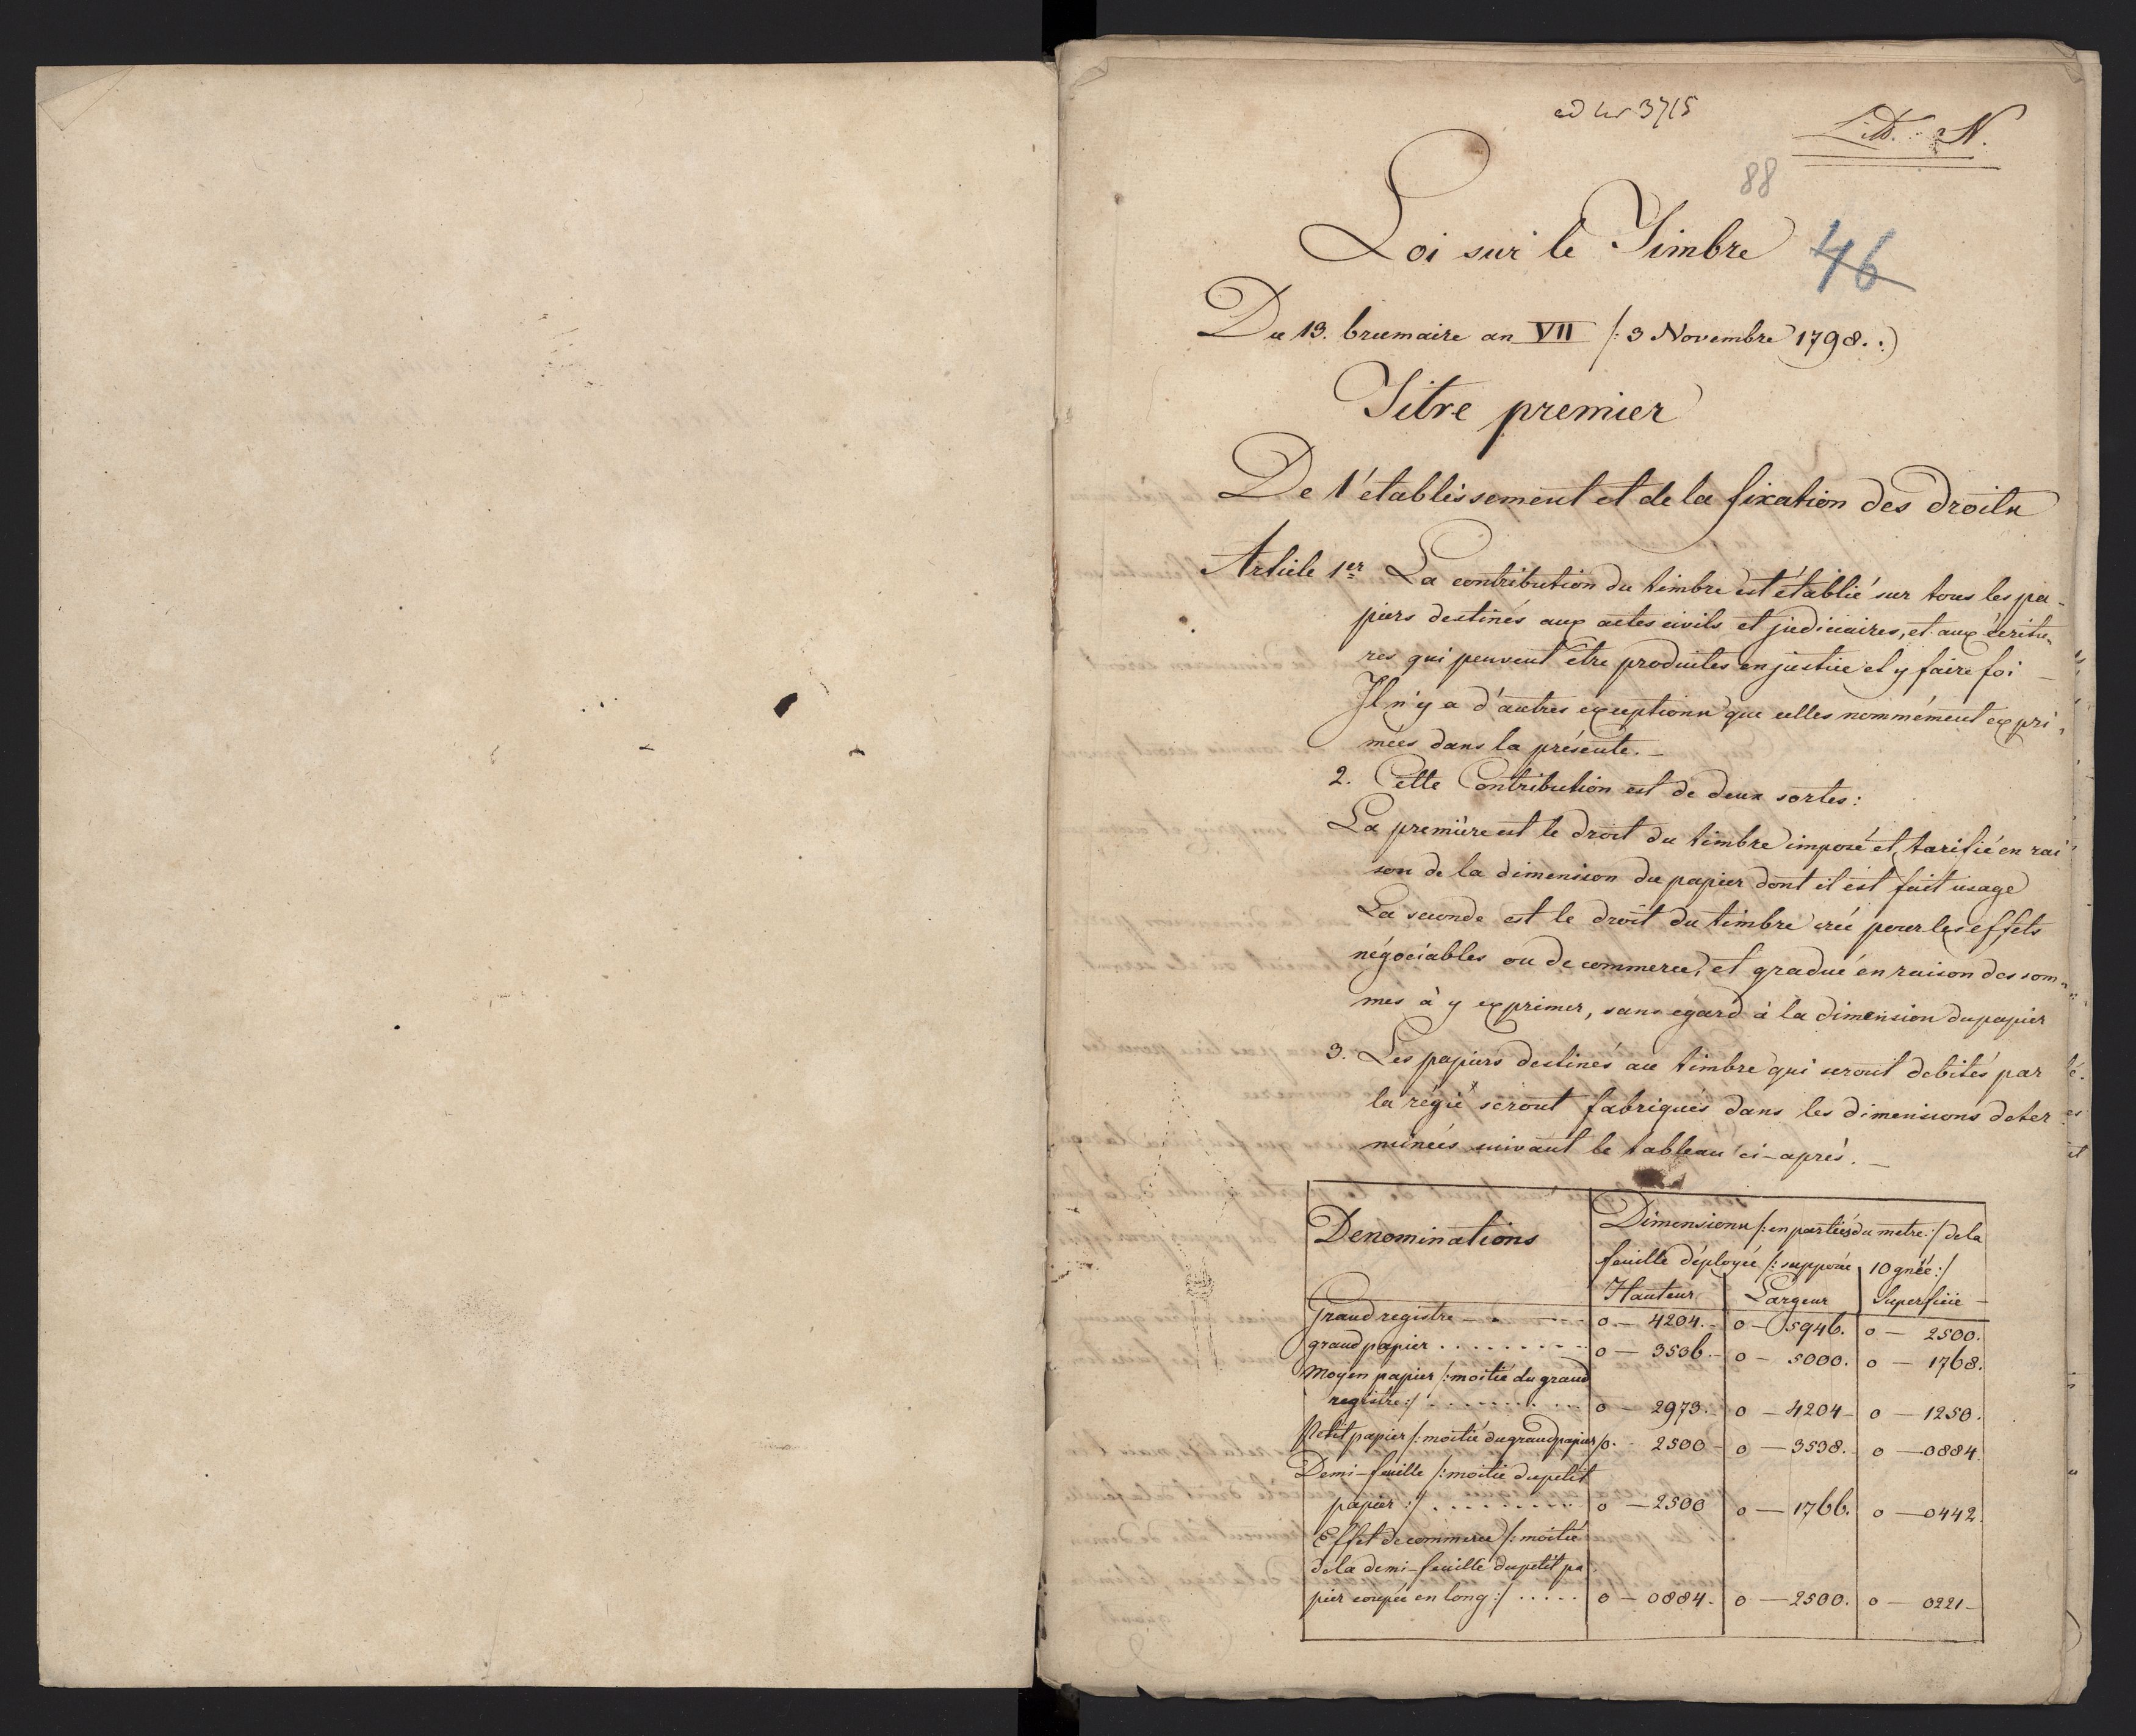 ad № 3715
Litt. N.
88
Loi sur le Timbre
46
Du 13. brumaire an VII /: 3 Novembre 1798. :)
Titre premier
De l'établissement et de la fixation des droits
Article 1er La contribution du timbre est établié sur tous les pa-
piers destinés aux actes civils et judiciaires, et aux écritu-
res qui peuvent être produites en justice et y faire foi
Il n'y a d'autres exceptions que celles nommément expri-
mées dans la présente. –
2. Cette Contribution est de deux sortes:
La première est le droit du timbre imposé et tarifié en rai
son de la dimension du papier dont il est fait usage
La seconde est le droit du timbre créé pour les effets
négociables ou de commerce, et gradué en raison des som-
mes à y exprimer, sans egard à la dimension du papier
3. Les papiers destinés au timbre qui seront debités par
la régie* seront fabriqués dans les dimensions deter
minées suivant le tableau ci-après. –
Denominations
Dimensions /: en parties du metre :/ de la
feuille déployée /: supposée rognée :/
Hauteur Largeur Superficie –
Grand registre – . – – – 0 – 4204. – 0 – 5946. 0 – 2500.
grand papier . . . . . . . . . . 0 – 3536. – 0 – 5000. 0 – 1768.
Moyen papier /: moitié du grand
registre :/ . . . . . . . . . 0 – 2973. – 0 – 4204 – 0 – 1250.
Petit papier /: moitié du grand papier/ 0. – 2500 – 0 – 3538. 0 – 0884.
Demi-feuille /: moitié du petit
papier :/ . . . . . . . . . 0 – 2500 0 – 1766. 0 – 0442.
Effet de commerce /: moitié
de la demi-feuille du petit pa
pier coupée en long :/ . . . . . 0 – 0884. 0 – 2500. 0 – 0221 –